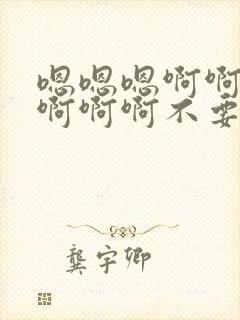 嗯嗯嗯啊啊
啊啊啊不要
龚宇卿